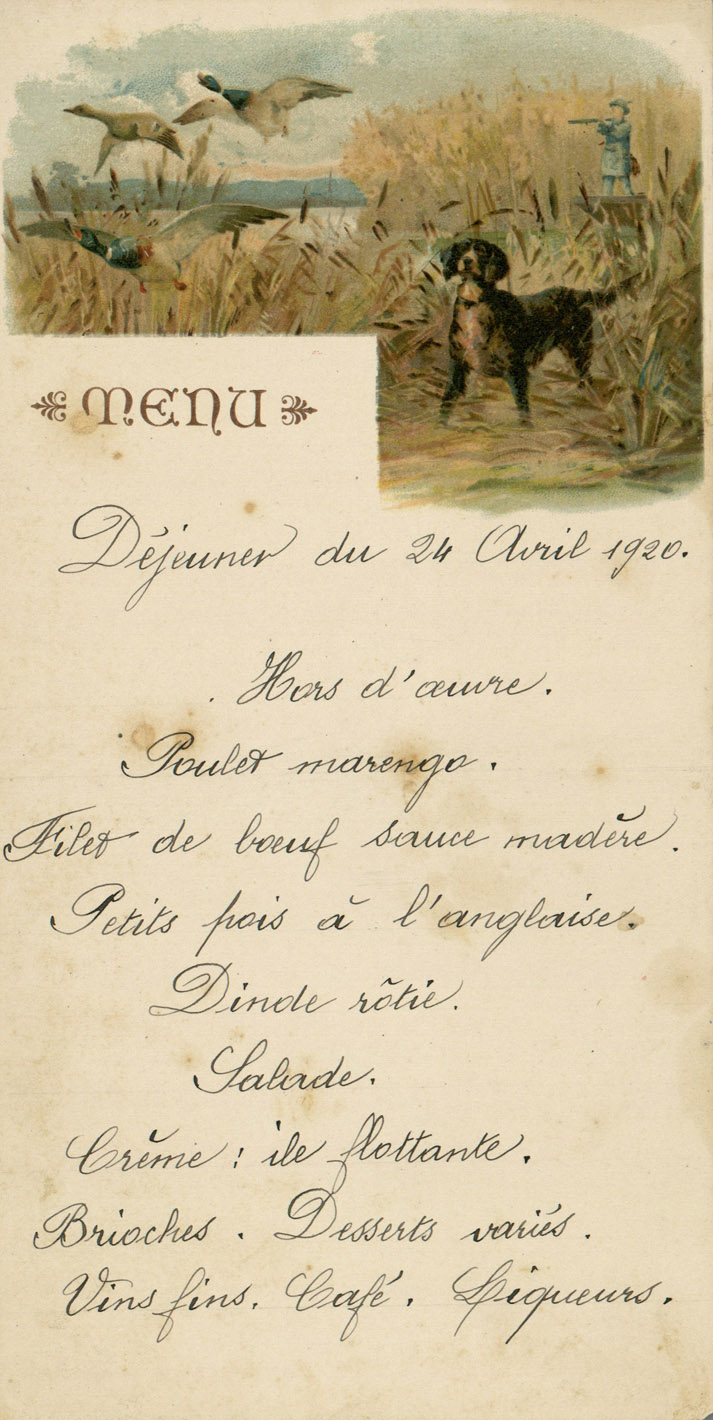 MENU
Déjeuner du 24 Avril 1920.
Hors d'œuvre.
Poulet marengo.
Filet de bœuf sauce madère.
Petits pois à l'anglaise.
Dinde rôtie.
Salade.
Crème : ile flottante.
Brioches. Desserts variés.
Vins fins. Café. Liqueurs.